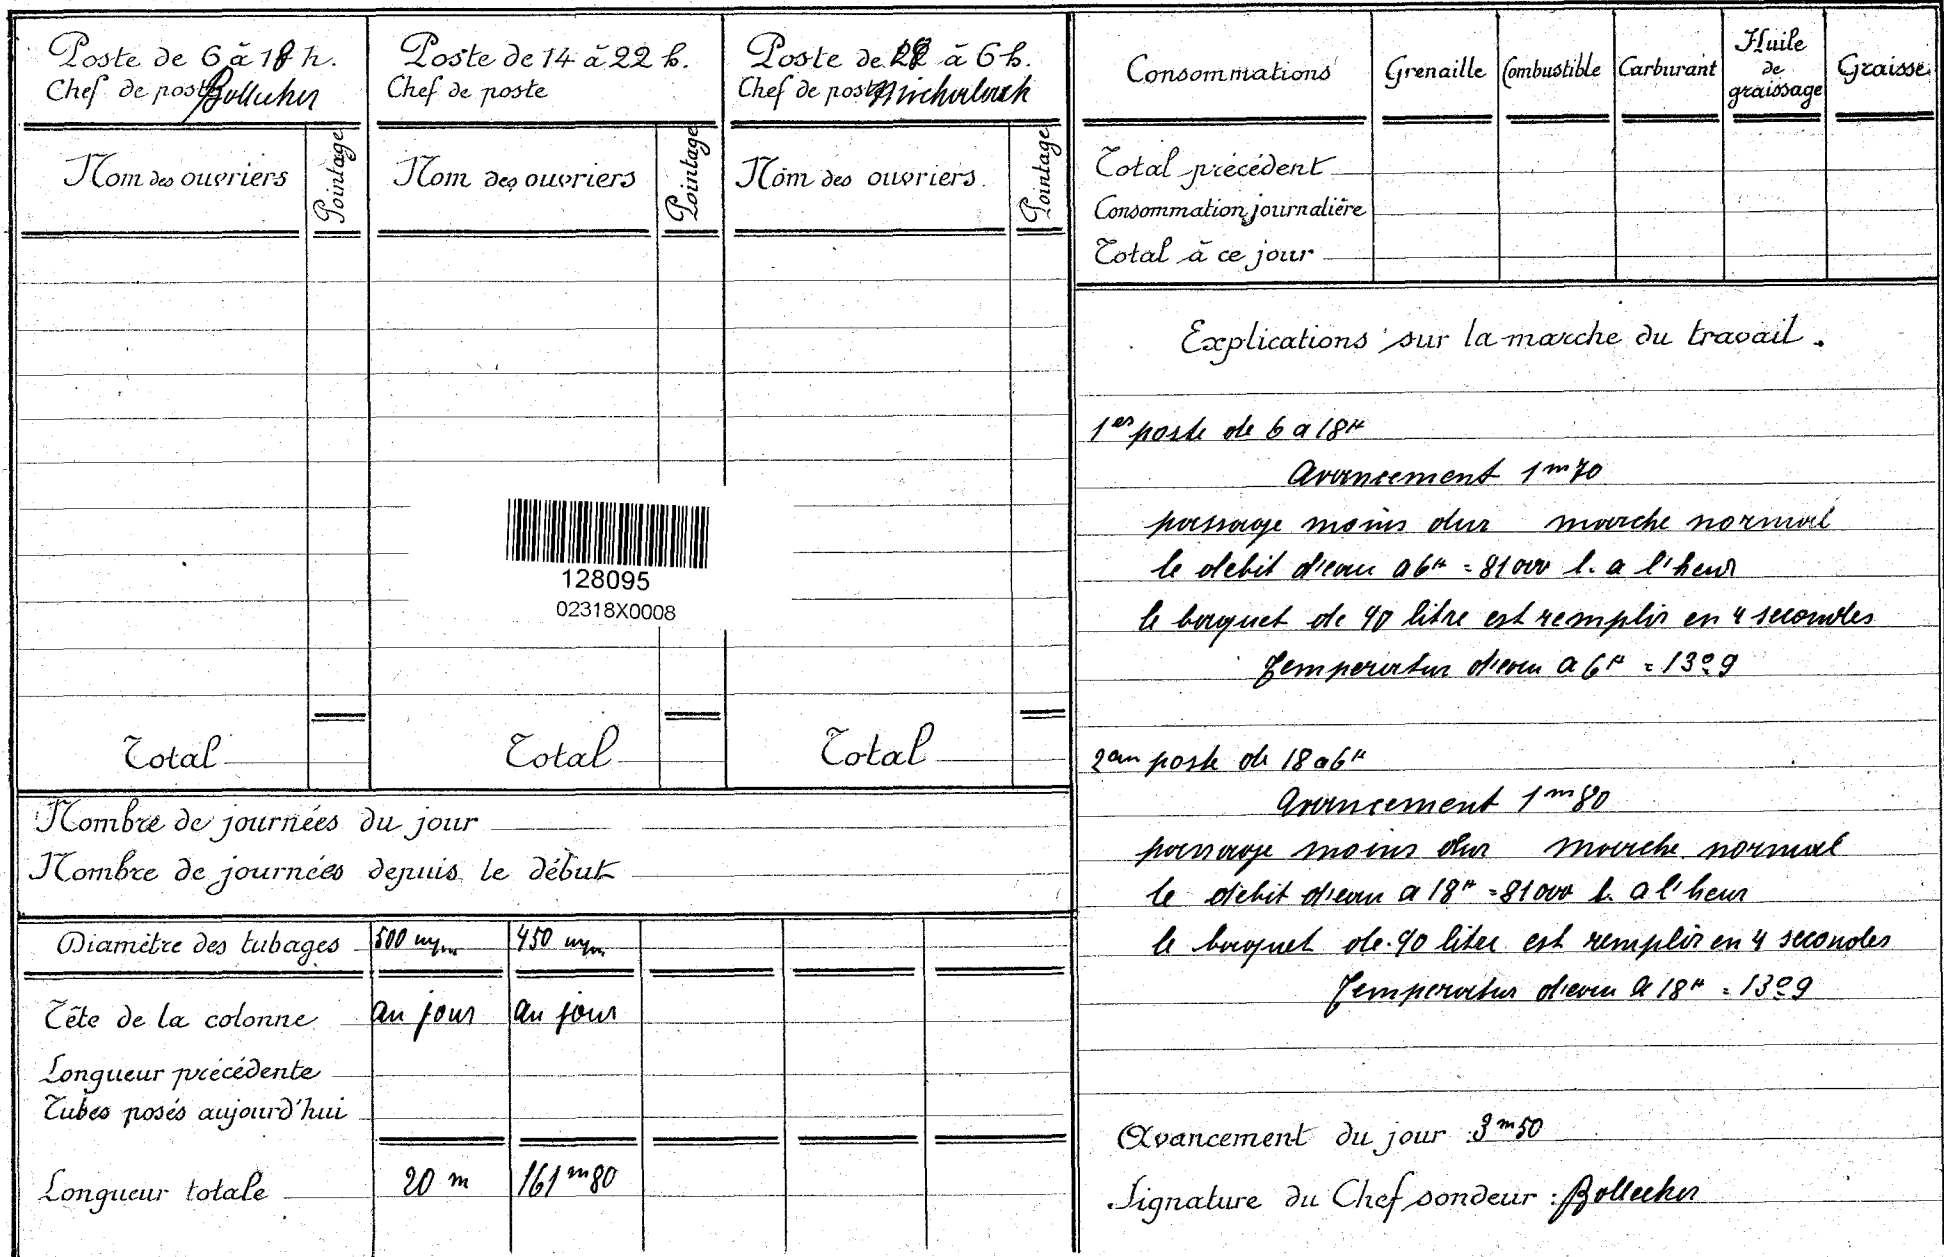 Poste de 6 à 18 h.
Chef de poste Bollecher
Poste de 14 à 22 h.
Chef de poste
Poste de 18 à 6 h.
Chef de poste
Nom des ouvriers
Pointage
Nom des ouvriers
Pointage
Nom des ouvriers
Pointage
128095
02318X0008
Total
Total
Total
Nombre de journées du jour
Nombre de journées depuis le début
Diamètre des tubages 500 m/m 450 m/m
Tête de la colonne au jour au jour
Longueur précédente
Tubes posés aujourd'hui
Longueur totale 20 m 161 m 80
Consommations Grenaille Combustible Carburant Huile de graissage Graisse
Total précédent
Consommation journalière
Total à ce jour
Explications sur la marche du travail.
1er poste de 6 a 18H
Avancement 1m70
passage moins dur marche normal
le debit d'eau a 6H = 81000 l. a l'heur
le baquet de 90 litre est remplir en 4 secondes
Temperatur d'eau a 6H = 13°9
2em poste de 18 a 6H
Avancement 1m80
passage moins dur marche normal
le debit d'eau a 18H = 81000 l. a l'heur
le baquet de 90 liter est remplir en 4 secondes
Temperatur d'eau a 18H = 13°9
Avancement du jour : 3m50
Signature du Chef sondeur : Bollecher